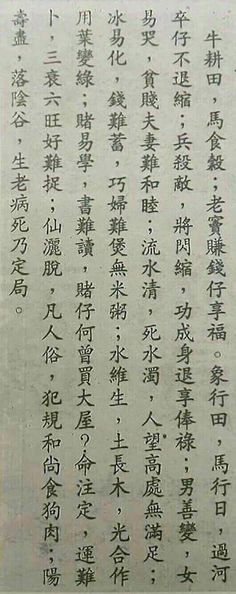 牛耕田，馬食穀；老竇賺錢仔享福。象行田，馬行日，過河
卒仔不退縮；兵殺敵，將閃縮，功成身退享俸祿；男善變，女
易哭，貧賤夫妻難和睦；流水清，死水濁，人望高處無滿足；
冰易化，錢難蓄，巧婦難煲無米粥；水維生，土長木，光合作
用葉變綠；賭易學，書難讀，賭仔何曾買大屋？命注定，運難
卜，三衰六旺好難捉；仙灑脫，凡人俗，犯規和尚食狗肉；陽
壽盡，落陰谷，生老病死乃定局。